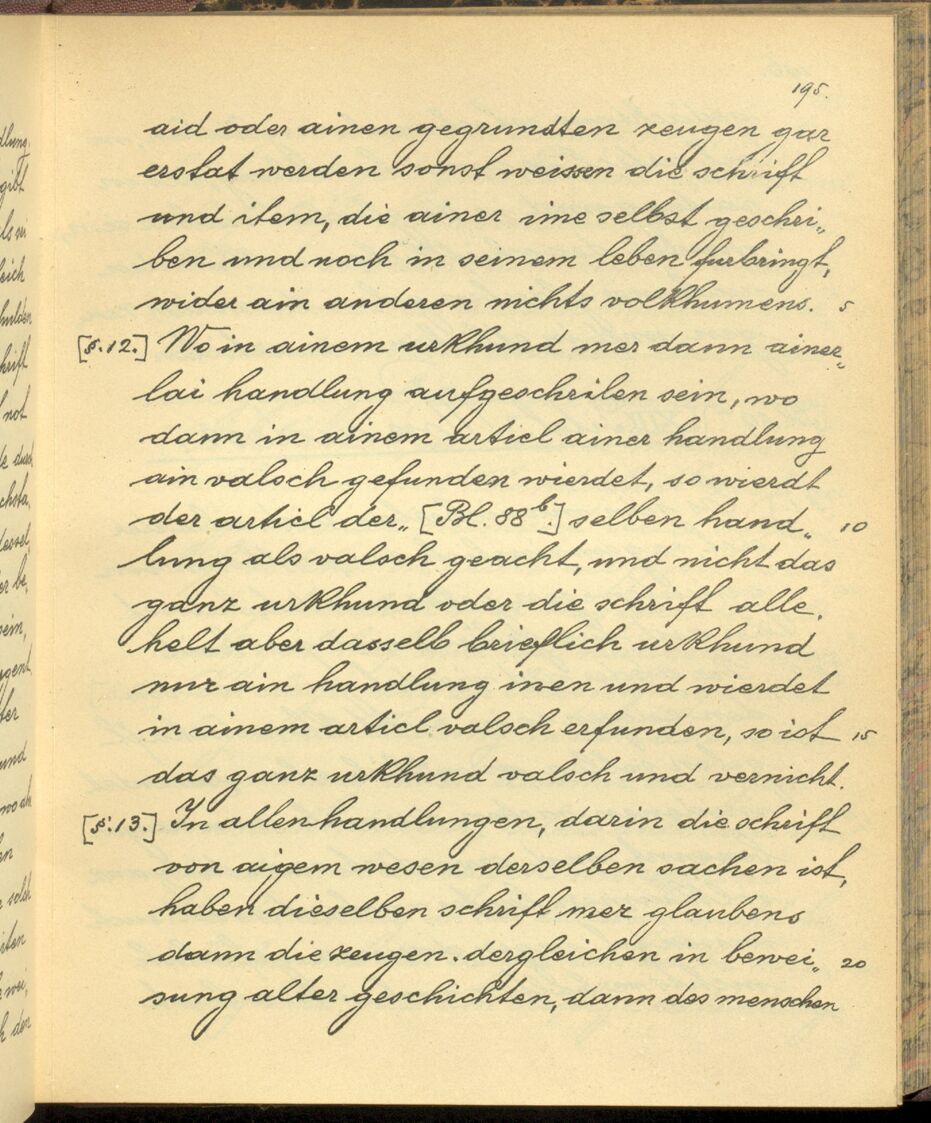 195.
aid oder ainen gegrundten zeugen gar
erstat werden sonst weissen die schrift
und item, die ainer ime selbst geschri„
ben und noch in seinem leben furbringt,
wider ain anderen nichts volkhumens. 5
[§.12.] Wo in ainem urkhund mer dann ainer„
lai handlung aufgeschriben sein, wo
dann in ainem articl ainer handlung
ain valsch gefunden wierdet, so wierdt
der articl der„ [Bl. 88b.] selben hand„ 10
lung als valsch geacht, und nicht das
ganz urkhund oder die schrift alle.
helt aber dasselb brieflich urkhund
nur ain handlung inen und wierdet
in ainem articl valsch erfunden, so ist 15
das ganz urkhund valsch und vernicht.
[§.13.] In allen handlungen, darin die schrift
von aigem wesen derselben sachen ist,
haben dieselben schrift mer glaubens
dann die zeugen. dergleichen in bewei„ 20
sung alter geschichten, dann des menschen